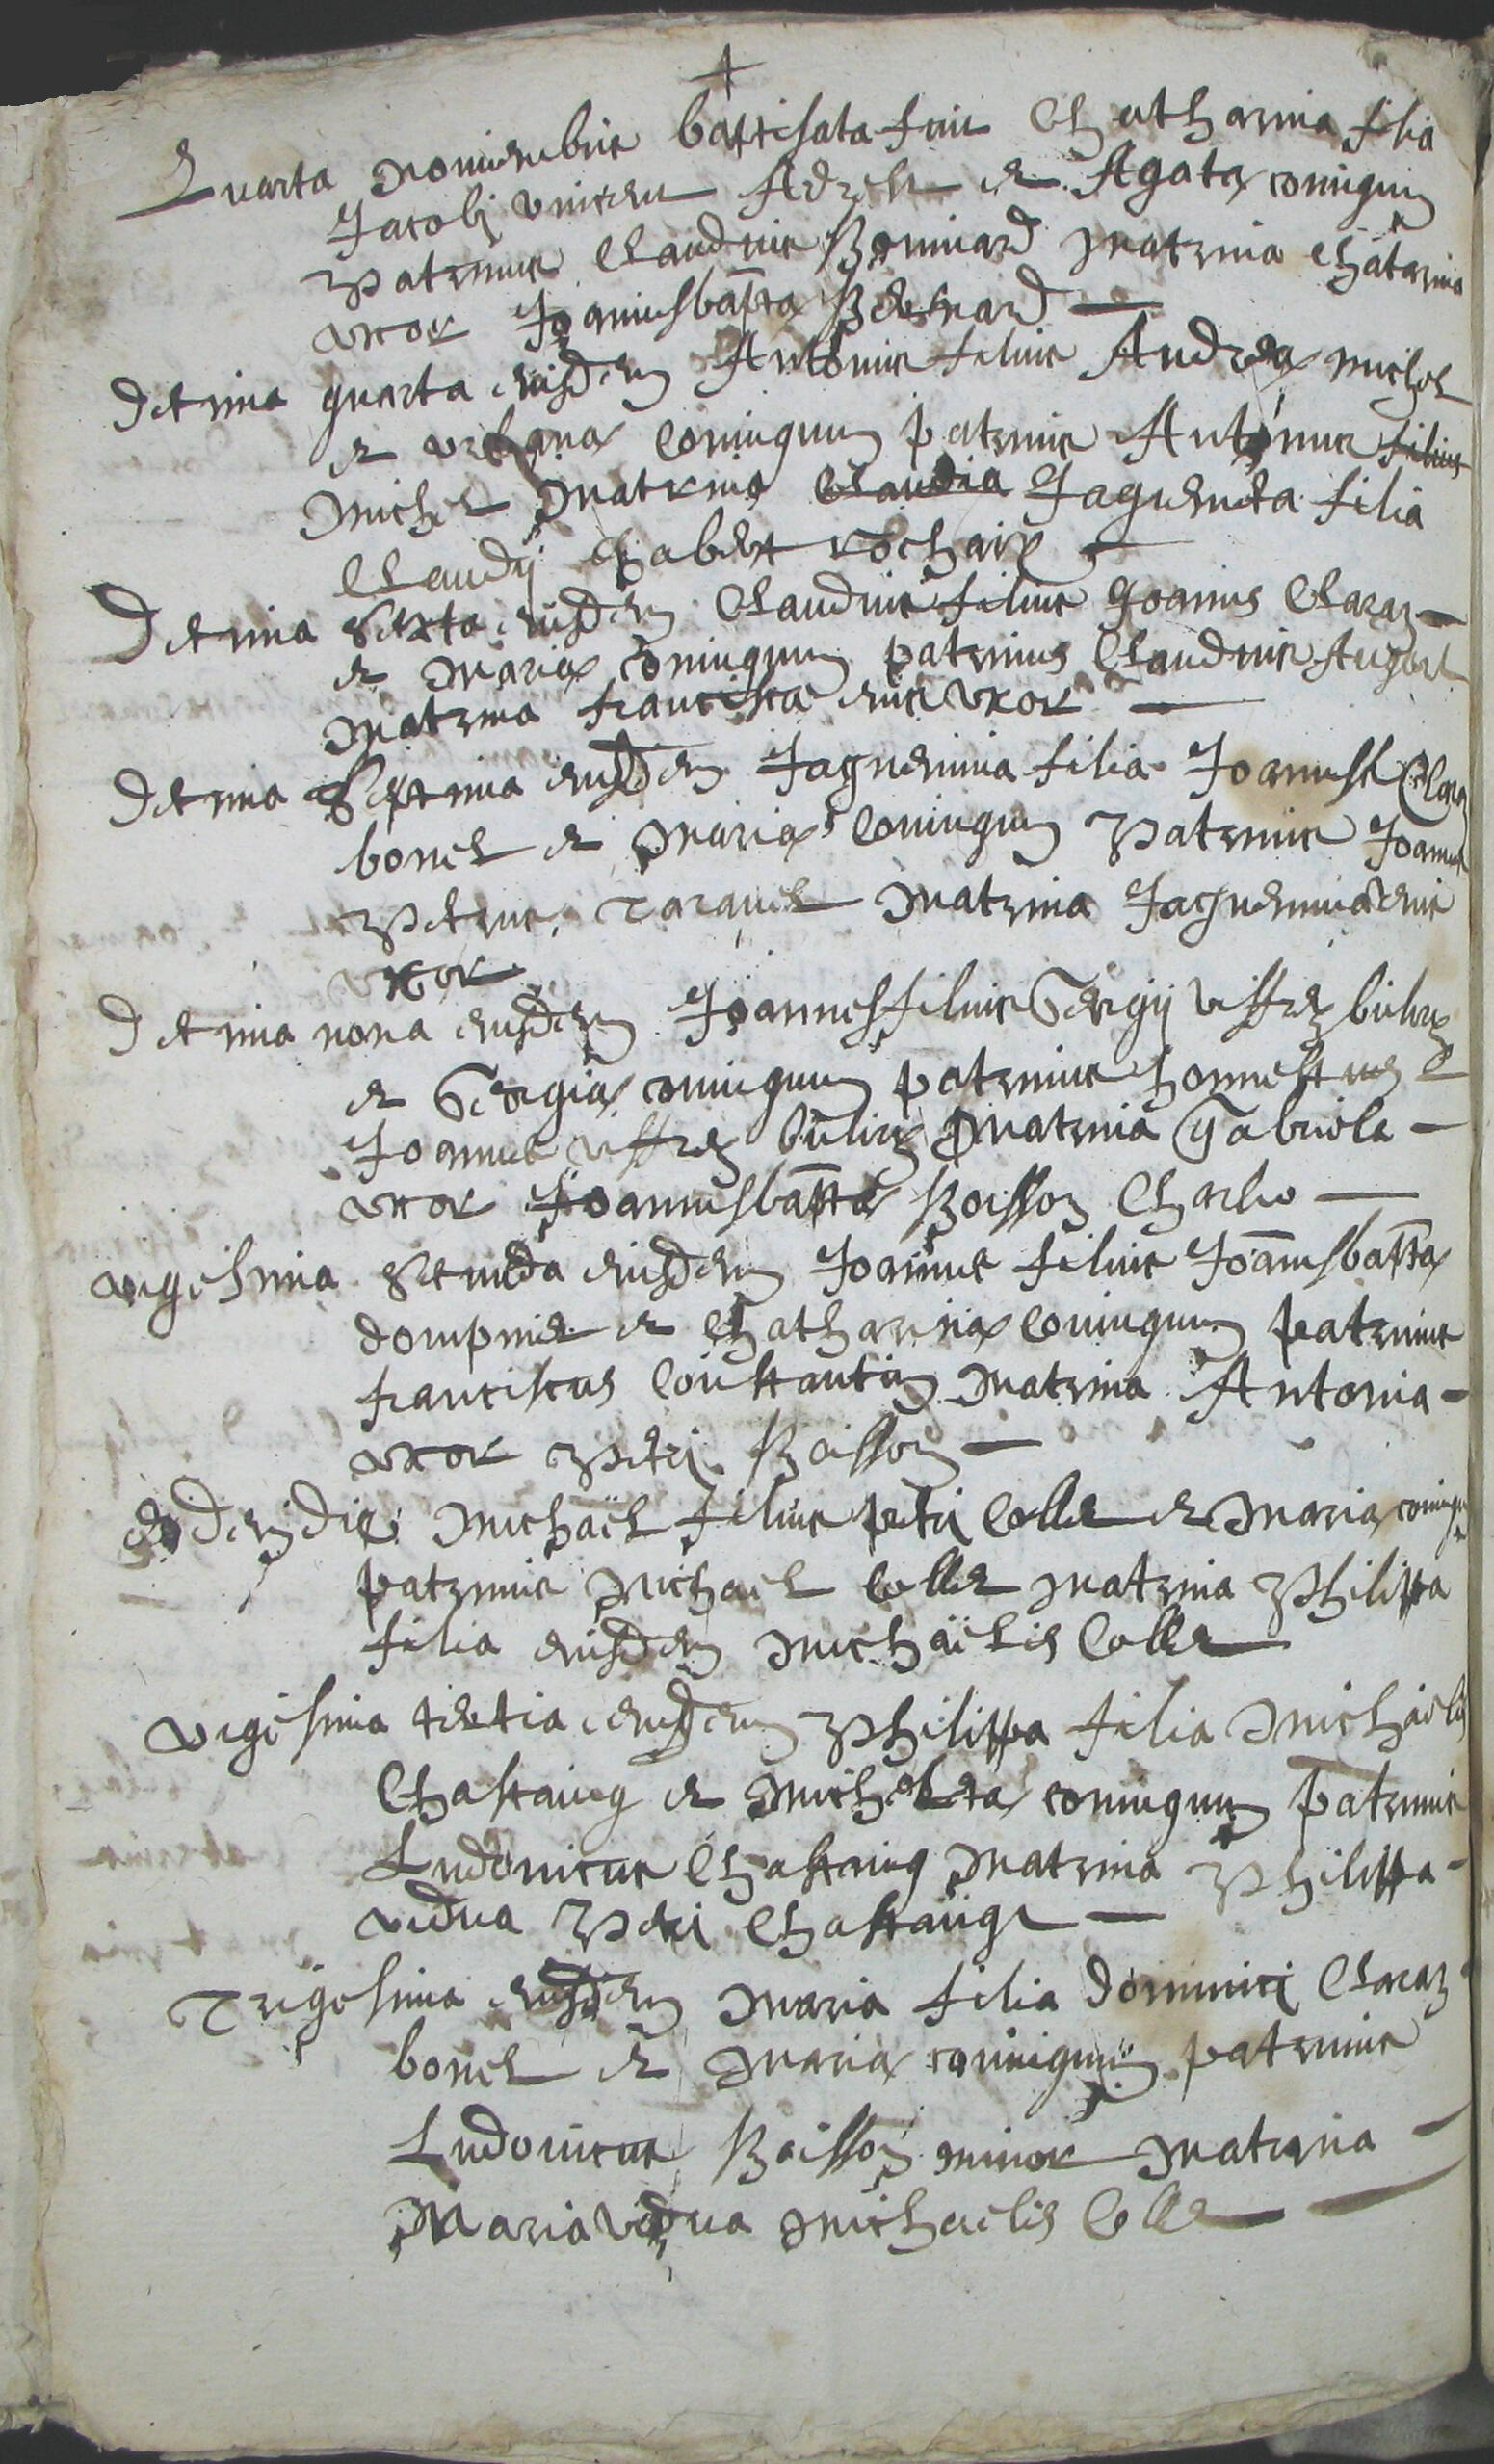 +
Quarta novembris battisata fuit Chatharina filia
Jacobi Vincent Adzeh et Agatæ coniugum
Patrinus Claudius Bernard matrina Chatarina
uxor Joannisbaptæ Bernard —
Decima quarta eiusdem Antonius filius Andreæ michel
et urbanæ coniugum patrinus Antonius filius
michel matrina Claudia Jaquemeta filia
Claudij Chabert rochaix —
Decima sexta eiusdem Claudius filius Joannis Claraz —
et mariæ coniugum patrinus Claudius
matrina francisca eius uxor —
Decima Septima eiusdem Jaquemina filia Joannis Clara
bonel et mariæ coniugum Patrinus Joannes
Petrus Taravel matrina Jaquemina eius
uxor
Decima nona eiusdem Joannes filius Georgij Vissez
et Georgiæ coniugum patrinus honnestus
Joannes Vissez matrina Gabriela —
uxor Joannisbaptæ Boisson Charlio —
vigesima secunda eiusdem Joannes filius Joannisbaptæ
dompmet et Chatharinæ coniugum patrinus
franciscus Constantin matrina Antonia -
uxor Petri Boisson —
eodem die michaël filius petri Collet et mariæ coniug
patrinus michael Collet matrina Philippa
filia eiusdem michaëlis Collet
vigesima tertia eiusdem Philippa filia michaëlis
Chastaing et micheletæ coniugum patrinus
Ludovicus Chastaing matrina Philippa -
vidua Petri Chastainge —
Trigesima eiusdem maria filia dominici Claraz
bonel et mariæ coniugum patrinus
Ludovicus Boisson minor matrina —
Maria vidua michaelis Collet —